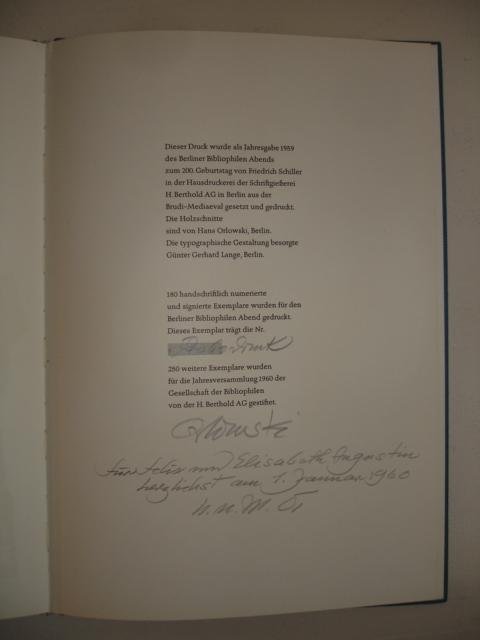 Dieser Druck wurde als Jahresgabe 1959
des Berliner Bibliophilen Abends
zum 200. Geburtstag von Friedrich Schiller
in der Hausdruckerei der Schriftgießerei
H. Berthold AG in Berlin aus der
Brudi-Mediaeval gesetzt und gedruckt.
Die Holzschnitte
sind von Hans Orlowski, Berlin.
Die typographische Gestaltung besorgte
Günter Gerhard Lange, Berlin.
180 handschriftlich numerierte
und signierte Exemplare wurden für den
Berliner Bibliophilen Abend gedruckt.
Dieses Exemplar trägt die Nr.
Probedruck
250 weitere Exemplare wurden
für die Jahresversammlung 1960 der
Gesellschaft der Bibliophilen
von der H. Berthold AG gestiftet.
Orlowski
für Felix und Elisabeth Augustin
herzlichst am 1. Januar 1960